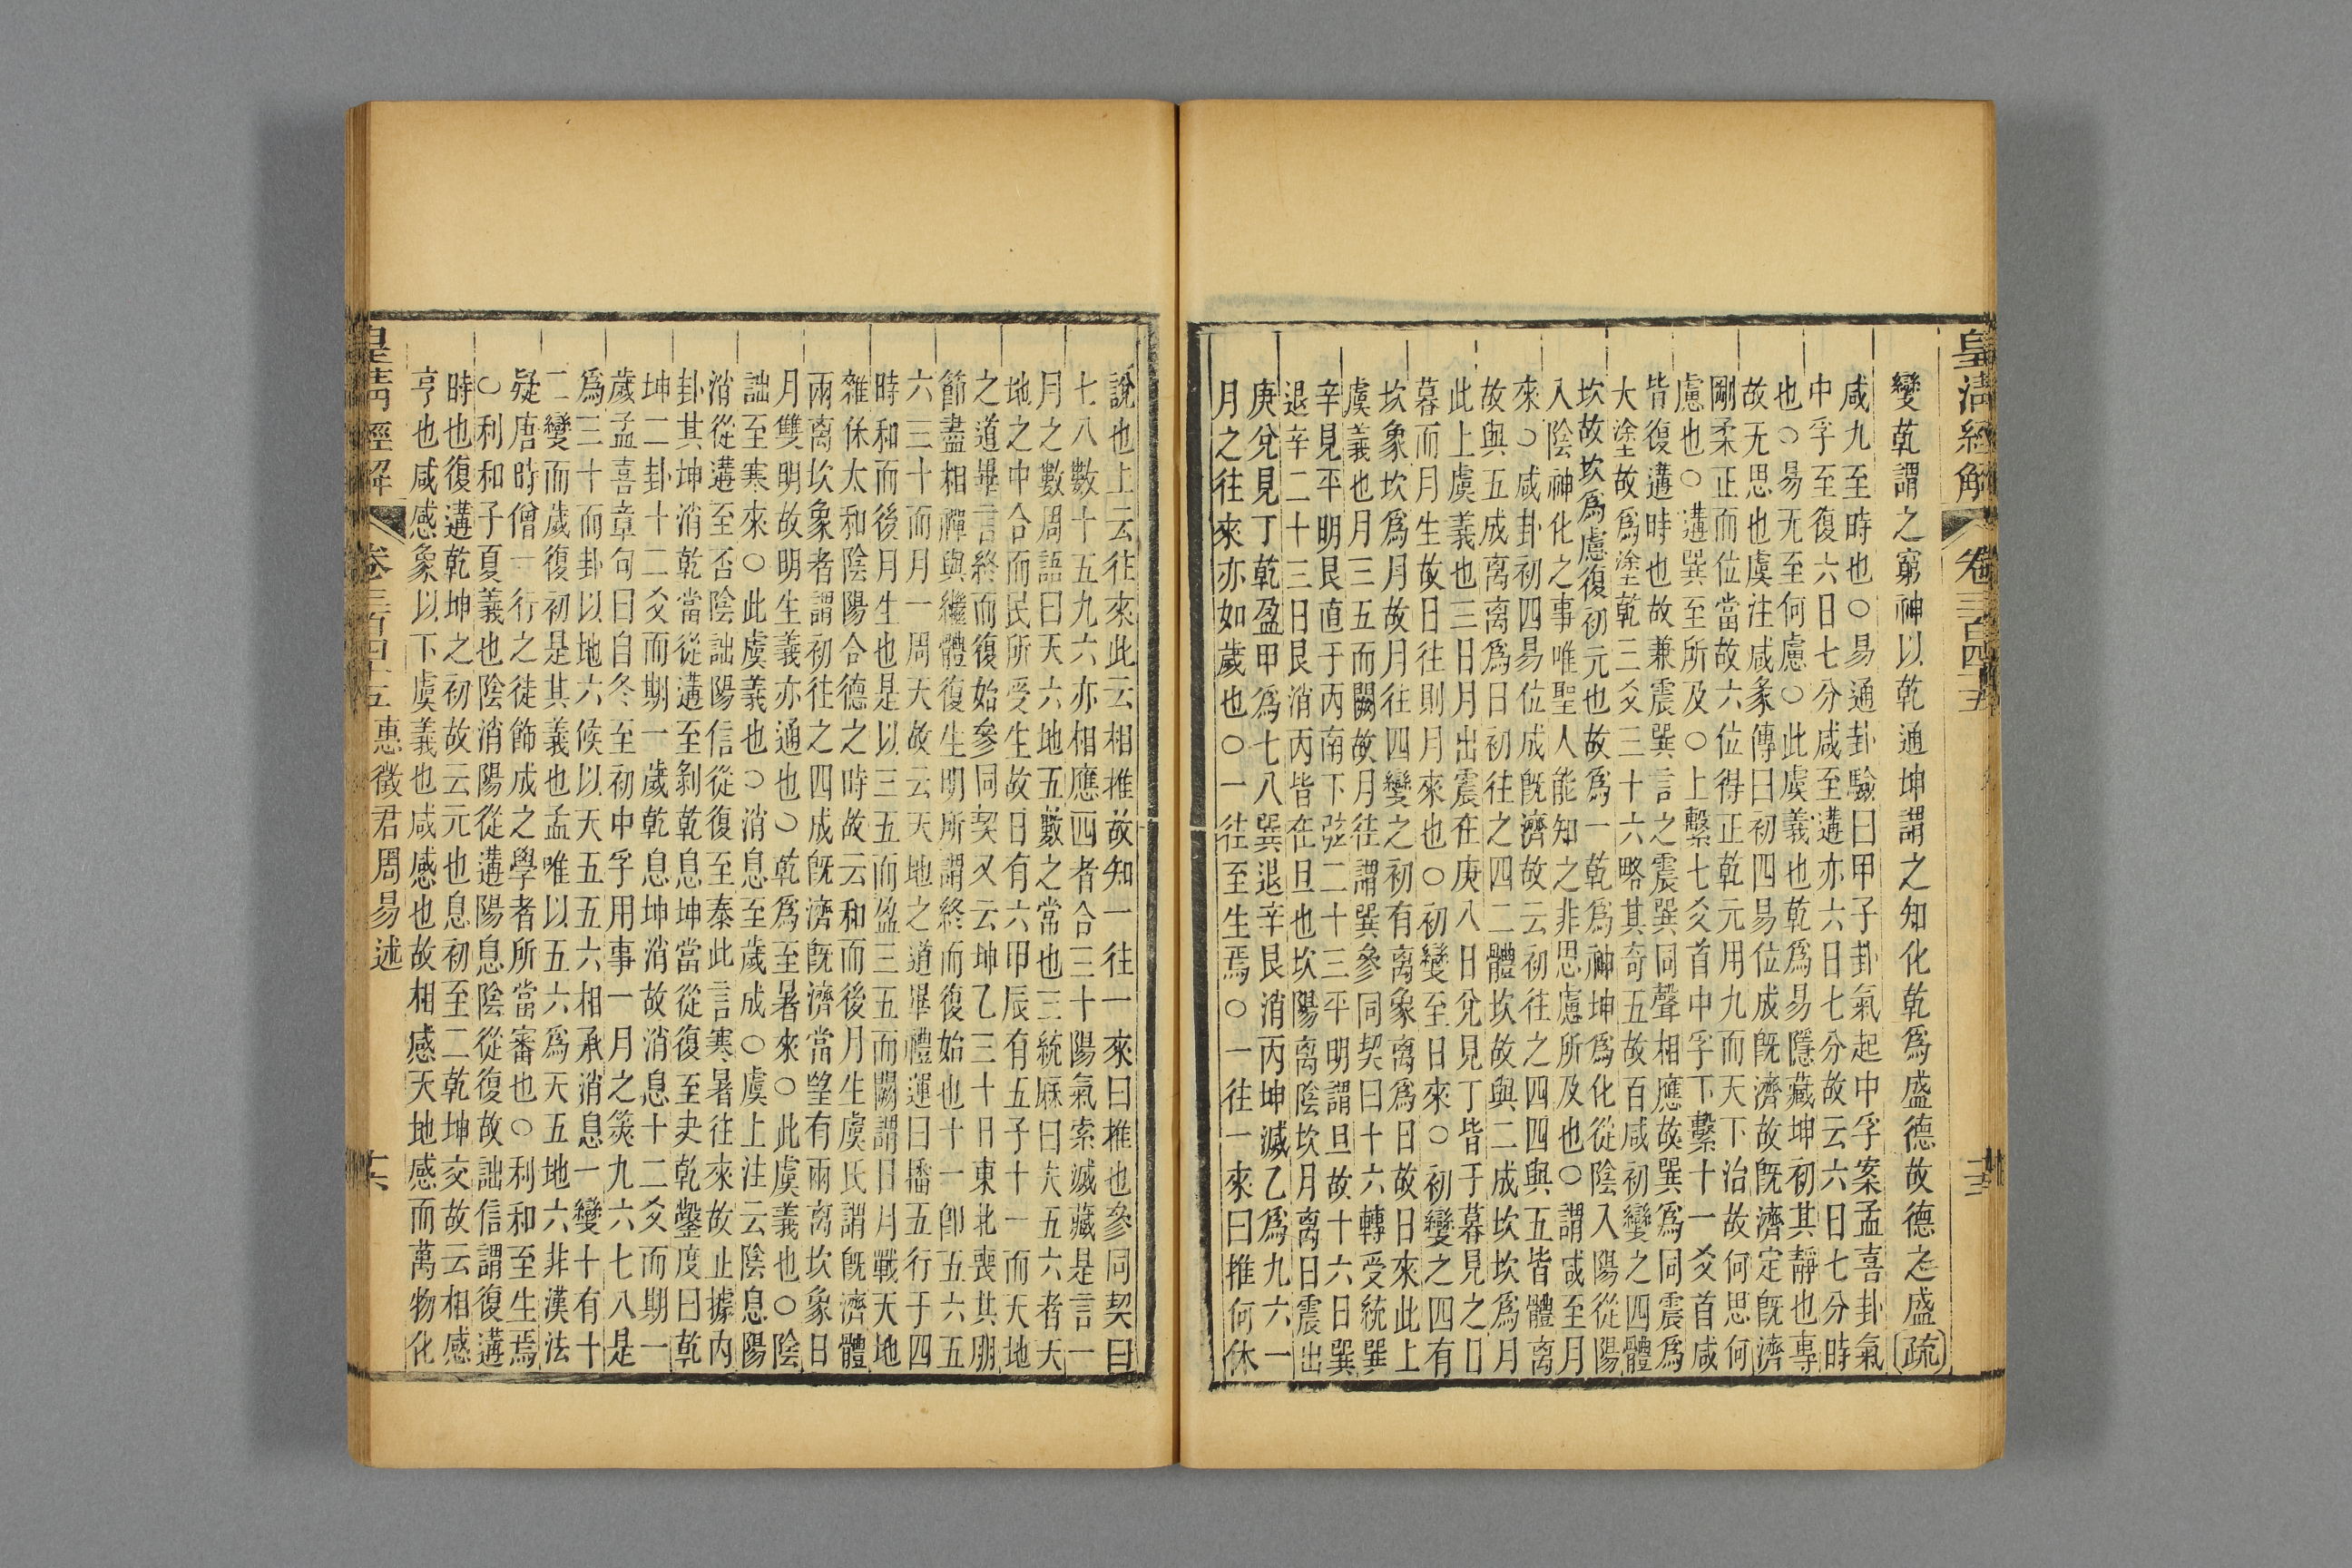 皇清經解
卷三百四十五
變乾謂之窮神以乾通坤謂之知化乾爲盛德故德之盛〔疏〕
咸九至時也○易通卦驗曰甲子卦氣起中孚案孟喜卦氣
中孚至復六日七分咸至遘亦六日七分故云六日七分時
也○易无至何慮○此虞義也乾爲易隱藏坤初其靜也專
故无思也虞注咸彖傳曰初四易位成旣濟故旣濟定旣濟
剛柔正而位當故六位得正乾元用九而天下治故何思何
慮也○遘巽至所及○上繫七爻首中孚下繫十一爻首咸
皆復遘時也故兼震巽言之震巽同聲相應故巽爲同震爲
大塗故爲塗乾三爻三十六略其奇五故百咸初變之四體
坎故坎爲慮復初元也故爲一乾爲神坤爲化從陰入陽從陽
入陰神化之事唯聖人能知之非思慮所及也○謂咸至月
來○咸卦初四易位成旣濟故云初往之四四與五皆體離
故與五成离离爲日初往之四二體坎故與二成坎坎爲月
此上虞義也三日月出震在庚八日兌見丁皆于暮見之日
暮而月生故日往則月來也○初變至日來○初變之四有
坎象坎爲月故月往四變之初有离象离爲日故日來此上
虞義也月三五而闕故月往謂巽參同契曰十六轉受統巽
辛見平明艮直于丙南下弦二十三平明謂旦故十六日巽
退辛二十三日艮消丙皆在旦也坎陽离陰坎月离日震出
庚兌見丁乾盈甲爲七八巽退辛艮消丙坤滅乙爲九六一
月之往來亦如歲也○一往至生焉○一往一來曰推何休
說也上云往來此云相推故知一往一來曰推也參同契曰
七八數十五九六亦相應四者合三十陽氣索滅藏是言一
月之數周語曰天六地五數之常也三統厤曰夫五六者天
地之中合而民所受生故日有六甲辰有五子十一而天地
之道畢言終而復始參同契又云坤乙三十日東北喪其朋
節盡相禪與繼體復生明所謂終而復始也十一卽五六五
六三十而月一周天故云天地之道畢禮運曰播五行于四
時和而後月生也是以三五而盈三五而闕謂日月戰天地
雜保太和陰陽合德之時故云和而後月生虞氏謂旣濟體
兩离坎象者謂初往之四成旣濟旣濟當望有兩离坎象日
月雙明故明生義亦通也○乾爲至暑來○此虞義也○陰
詘至寒來○此虞義也○消息至歲成○虞上注云陰息陽
消從遘至否陰詘陽信從復至泰此言寒暑往來故止據內
卦其坤消乾當從遘至剝乾息坤當從復至夬乾鑿度曰乾
坤二卦十二爻而期一歲乾息坤消故消息十二爻而期一
歲孟喜章句曰自冬至初中孚用事一月之筴九六七八是
爲三十而卦以地六候以天五五六相承消息一變十有十
二變而歲復初是其義也孟唯以五六爲天五地六非漢法
疑唐時僧一行之徒飾成之學者所當審也○利和至生焉
○利和子夏義也陰消陽從遘陽息陰從復故詘信謂復遘
時也復遘乾坤之初故云元也息初至二乾坤交故云相感
亨也咸感象以下虞義也咸感也故相感天地感而萬物化
皇清經解
卷三百四十五 惠徵君周易述